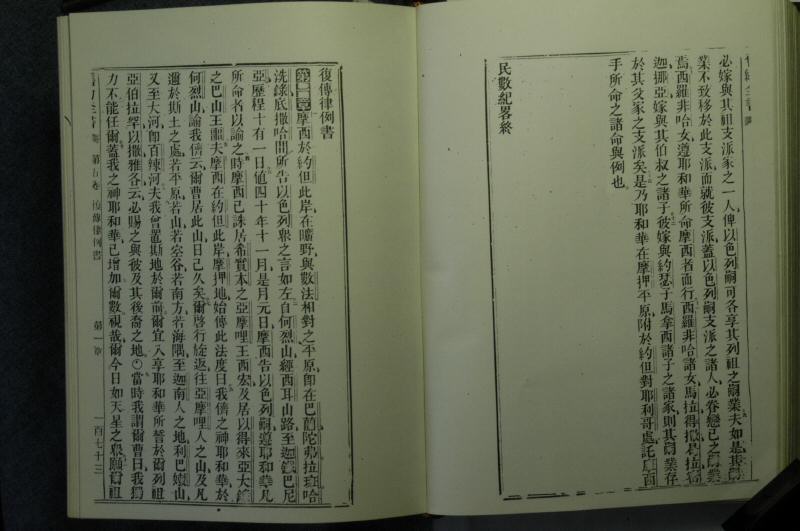 必嫁與其祖支派家之一人俾以色列嗣可各享其列祖之嗣業夫如是其嗣
業不致移於此支派而就彼支派蓋以色列嗣支派之諸人必眷戀己之嗣業
焉西羅非哈女遵耶和華所命摩西者而行西羅非哈諸女馬拉得撒曷拉
迦挪亞嫁與其伯叔之諸子彼嫁與約瑟子馬拿西諸子之諸家則其嗣業存
於其父家之支派矣是乃耶和華在摩押平原附於約但對耶利哥處託摩西
手所命之諸命與例也
民數紀畧終
復傳律例書
第一章摩西於約但此岸在曠野與數法相對之平原即在巴蘭陀弗拉班哈
洗錄底撒哈間所告以色列衆之言如左自何烈山經西耳山路至迦鐵巴尼
亞歷程十有一日値四十年十一月是月元日摩西告以色列嗣遵耶和華凡
所命名以諭之時摩西已誅居希實本之亞摩哩王西宏及居以得來亞大錄
之巴山王噩夫摩西在約但此岸摩押地始傳此法度曰我儕之神耶和華於
何烈山諭我儕云爾曹居此山日已久矣爾啓行旋返往亞摩哩人之山及凡
邇於斯土之處若平原若山若空谷若南方若海隅至迦南人之地利巴嫩山
又至大河即百辣河夫我曾置斯地於爾前爾宜入享耶和華所誓於爾列祖
亞伯拉罕以撒雅各云必賜之與彼及其後裔之地〇當時我謂爾曹曰我獨
力不能任爾蓋我之神耶和華已增加爾數視哉爾今日如天星之衆願爾祖
第五卷 復傳律例書 第一章 一百七十三